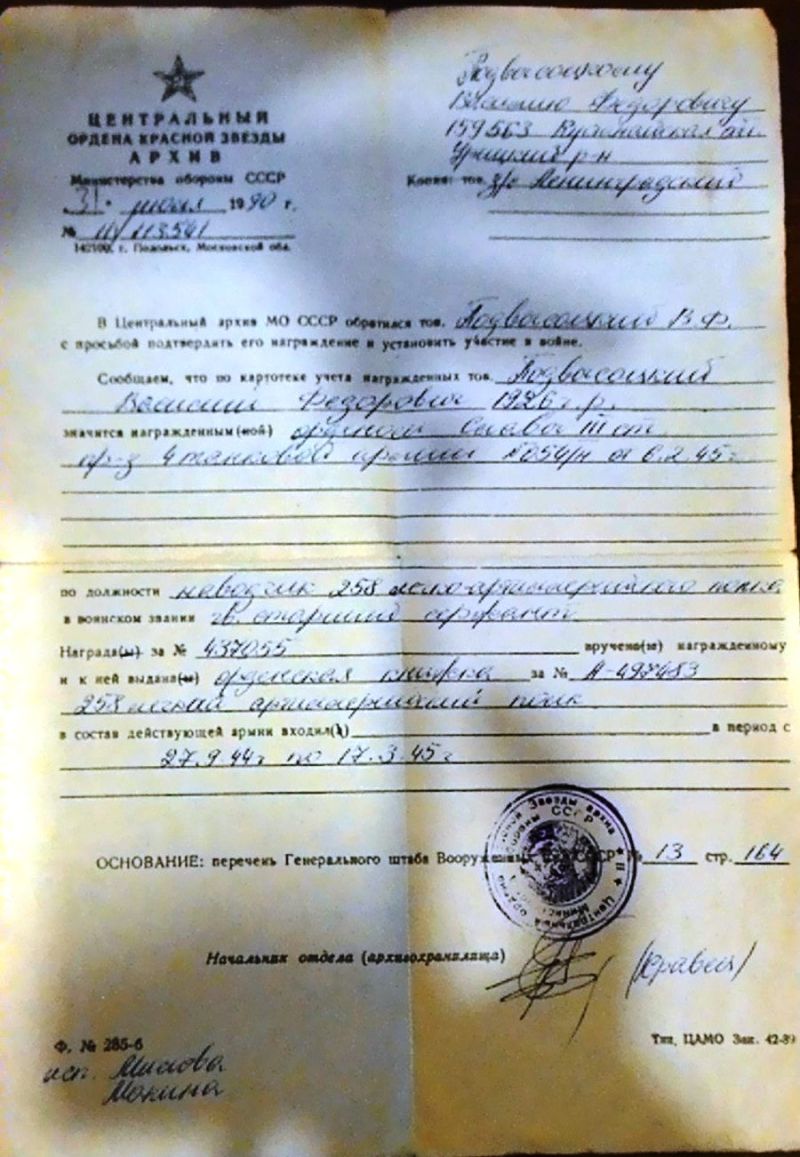 ЦЕНТРАЛЬНЫЙ
ОРДЕНА КРАСНОЙ ЗВЕЗДЫ
АРХИВ
Министерства обороны СССР
31. 1990 г.
№ 11/113541
142100, г. Подольск, Московской обл.
Подвысоцкому
Василию Федоровичу
159563
Урицкий р-н
Копия: тов. з/с Ленинградский
В Центральный архив МО СССР обратился тов. Подвысоцкий В.Ф.
с просьбой подтвердить его награждение и установить участие в войне.
Сообщаем, что по картотеке учета награжденных тов. Подвысоцкий
Василий Федорович 1926 г.р.
значится награжденным(ной) орденом Славы III ст.
пр-з 4 танковой армии №054/н от 6.2.45г
по должности наводчик 258 легко-артиллерийского полка
в воинском звании гв. старший сержант
Награда(ы) за № 437055 вручена(ы) награжденному
и к ней выдана(ы) орденская книжка за № А-497483
258 легкий артиллерийский полк
в состав действующей армии входил(а) в период с
27.9.44г по 17.3.45г
ОСНОВАНИЕ: перечень Генерального штаба Вооруженных Сил СССР № 13 стр. 164
Начальник отдела (архивохранилища) (Кравец)
Ф. № 285-б
Тип. ЦАМО Зак. 42-89
исп.
Мокина